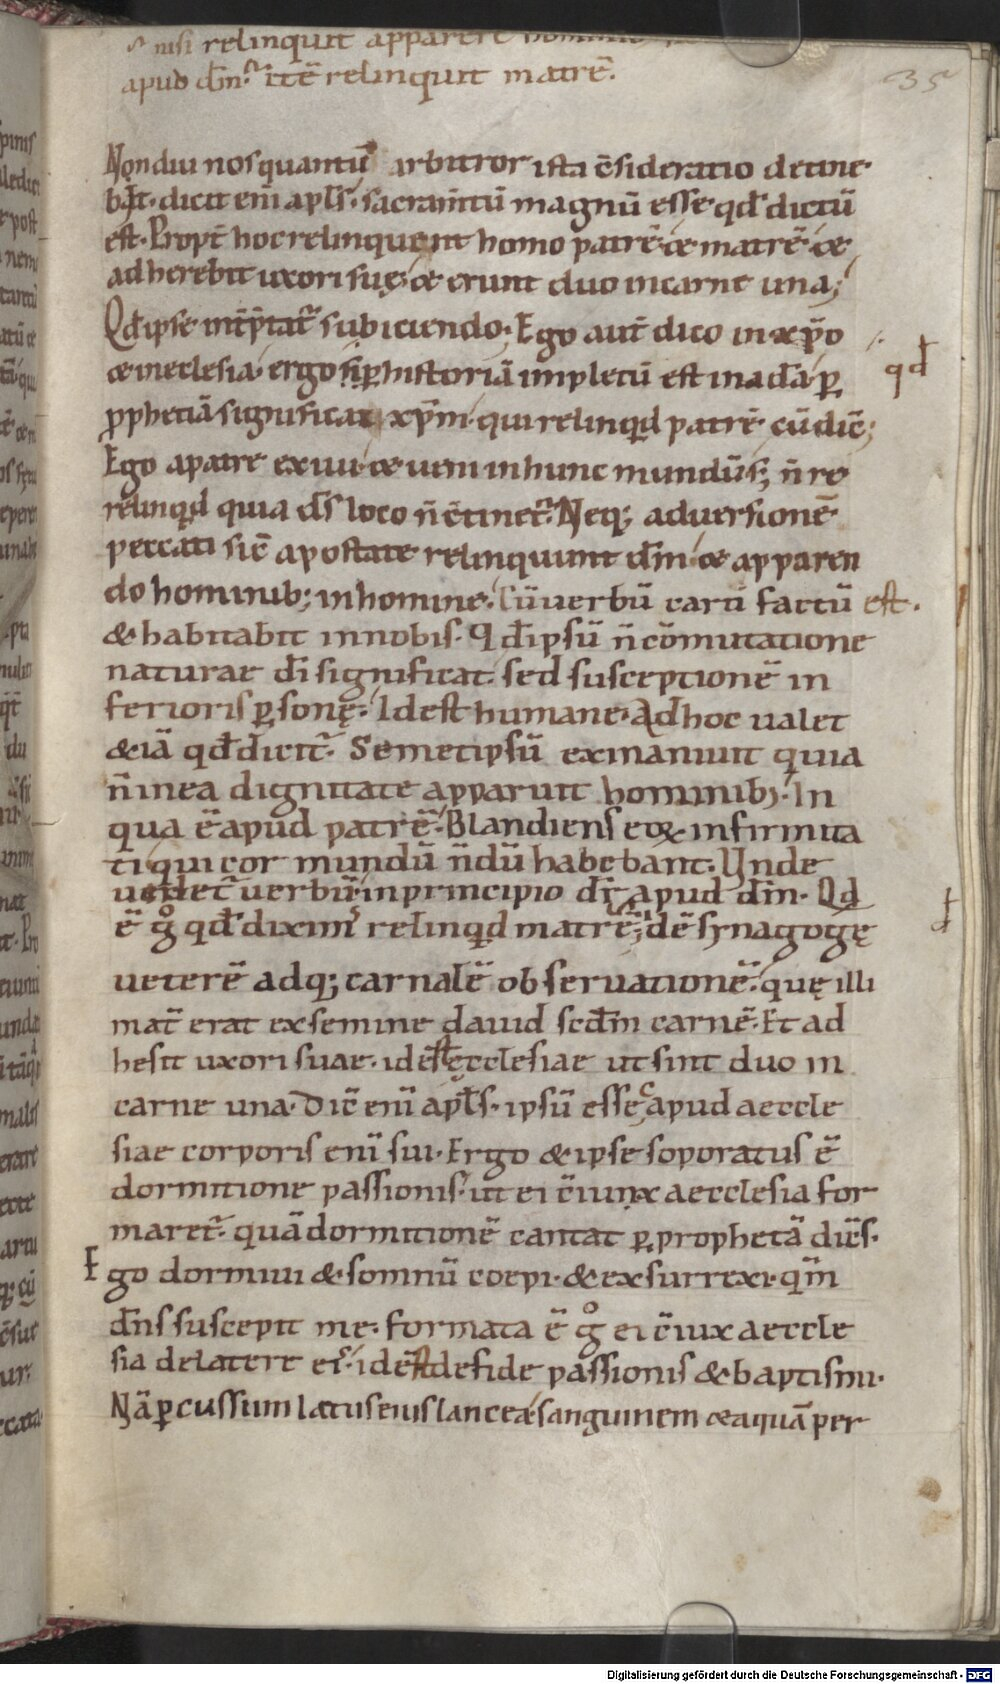 nisi relinquit apparere
apud dm̄ itē relinquit matrē.
35
Non diu nos quantū arbitror ista c̄sideratio detine
bit. dicit eni apl̄s. sacram̄tū magnū esse qd̄ dictū
est. Propt̄ hoc relinquent homo patrē & matrē &
adherebit uxori suę; & erunt duo in carne una;
Qd̄ ipse int̄p̄tat̄ subiciendo; Ego aut̄ dico in xp̄o
& in eclesia ergo si ꝑ historiā impletū est in adā ꝑ
qd
ꝓphetiā significat xp̄m. qui relinqid patrē cū dic̄;
Ego a patre exiui & ueni in hunc mundū; n̄ re
relinqid quia ds̄ loco n̄ c̄tinet̄. Neq; aduersionē
peccati sic̄ apostate relinquunt dm̄ & apparen
do hominib; in homine. Cū uerbū caro factū est.
& habitabit in nobis. qd̄ ipsū n̄ cōmutatione
naturae dī significat. sed susceptionē in
ferioris ꝑsonę. Id est humane. Ad hoc ualet
& iā qd̄ dicit̄. Semetipsū exinaniuit quia
n̄ in ea dignitate apparuit hominib;. In
qua ē apud patrē. Blandiens eoꝝ infirmita
ti qui cor mundū n̄dū habebant. Unde
uidet̄ uerbū in principio dm̄ apud dm̄. Qd
ē gͦ qd̄ diximꝰ relinqid matrē; idē synagogę
ueterē adq; carnalē obseruationē. quę illi
mat̄ erat ex semine dauid scd̄m carnē. Et ad
hesit uxori suae. id est ęcclesiae ut sint duo in
carne una. Dic̄ eni apl̄s. ipsū esse capud aeccle
siae corporis eni sui. Ergo & ipse soporatus ē
dormitione passionis. ut ei c̄iunx aecclesia for
maret̄. quā dormitionē cantat ꝑ prophetā dic̄s.
Ego dormiui & somnū coepi. & exsurrexi. qm̄
dn̄s suscepit me. formata ē gͦ ei c̄iux aeccle
sia de latere eiꝰ. id est de fide passionis & baptismi.
Nā ꝑcussum latus eius lancea sanguinem & aquā per
Digitalisierung gefördert durch die Deutsche Forschungsgemeinschaft - DFG